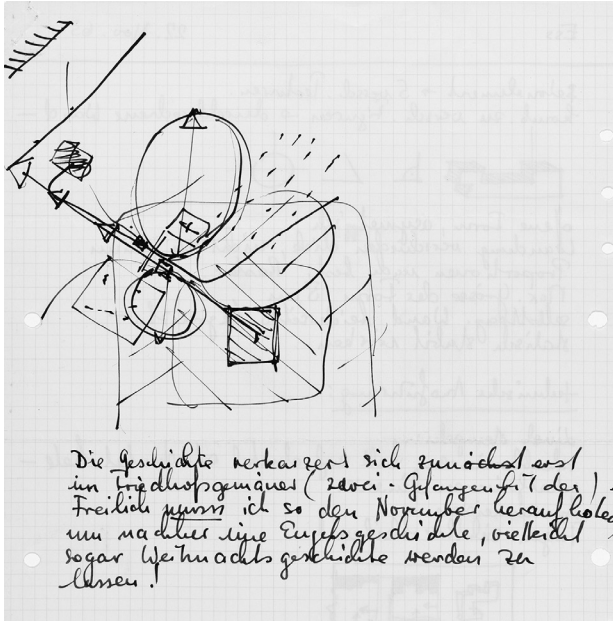 Die Geschichte verkarzert sich zunächst erst
im Friedhofsgemäuer (zwei - Gefangenen der)
Freilich muss ich so den November heraufholen
um nachher eine Engelsgeschichte, vielleicht
sogar Weihnachtsgeschichte werden zu
lassen!